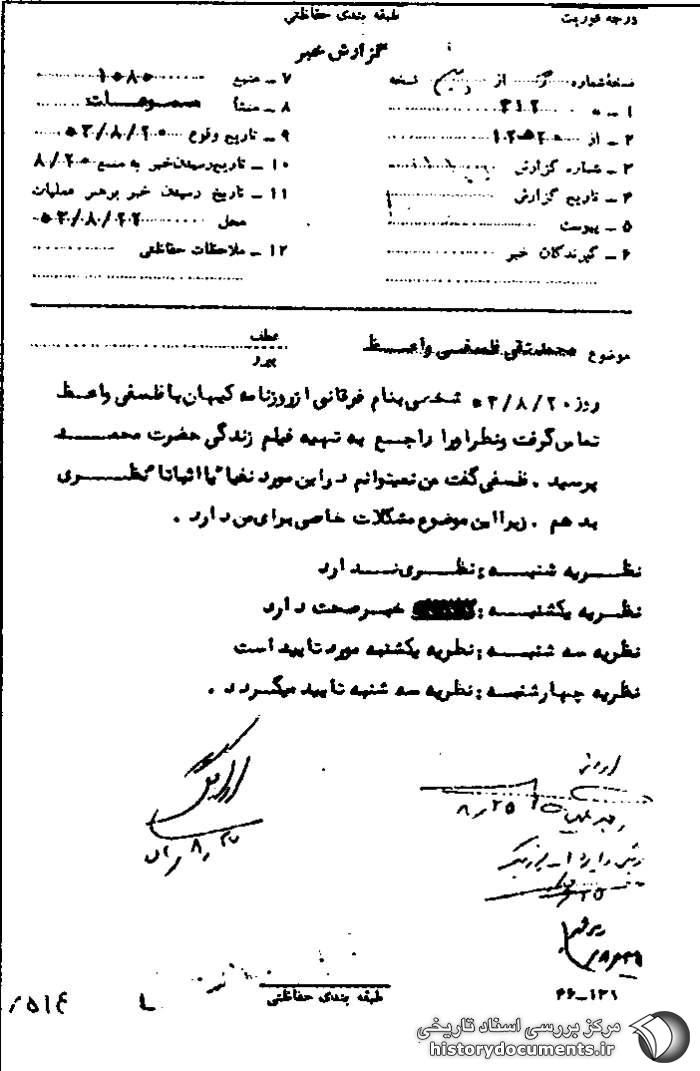 درجه فوریت
طبقه بندی حفاظتی
گزارش خبر
نسخه شماره از نسخه
۱ – به ۳۱۲
۲ – از ۱۲ ه ۲۰
۳ – شماره گزارش
۴ – تاریخ گزارش
۵ – پیوست
۶ – گیرندگان خبر
۷ – منبع ۱۰۸۰
۸ – منشأ مسموعات
۹ – تاریخ وقوع ۵۳/۸/۲۰
۱۰ – تاریخ رسیدن خبر به منبع ۸/۲۰
۱۱ – تاریخ رسیدن خبر برهبر عملیات
محل ۵۳/۸/۲۲
۱۲ – ملاحظات حفاظتی
موضوع محمدتقی فلسفی واعظ
عطف
پیرو
روز ۵۳/۸/۲۰ شخصی بنام فرقانی از روزنامه کیهان با فلسفی واعظ
تماس گرفت ونظر اورا راجع به تهیه فیلم زندگی حضرت محمد
پرسید . فلسفی گفت من نمیتوانم در این مورد نفیا" یا اثباتا" نظری
بدهم . زیرا این موضوع مشکلات خاصی برای من دارد .
نظریه شنبه : نظری ندارد
نظریه یکشنبه : خبر صحت دارد
نظریه سه شنبه : نظریه یکشنبه مورد تایید است
نظریه چهارشنبه : نظریه سه شنبه تایید میگردد .
۸/۲۵
طبقه بندی حفاظتی
۴۶–۱۲۱
مرکز بررسی اسناد تاریخی
historydocuments.ir